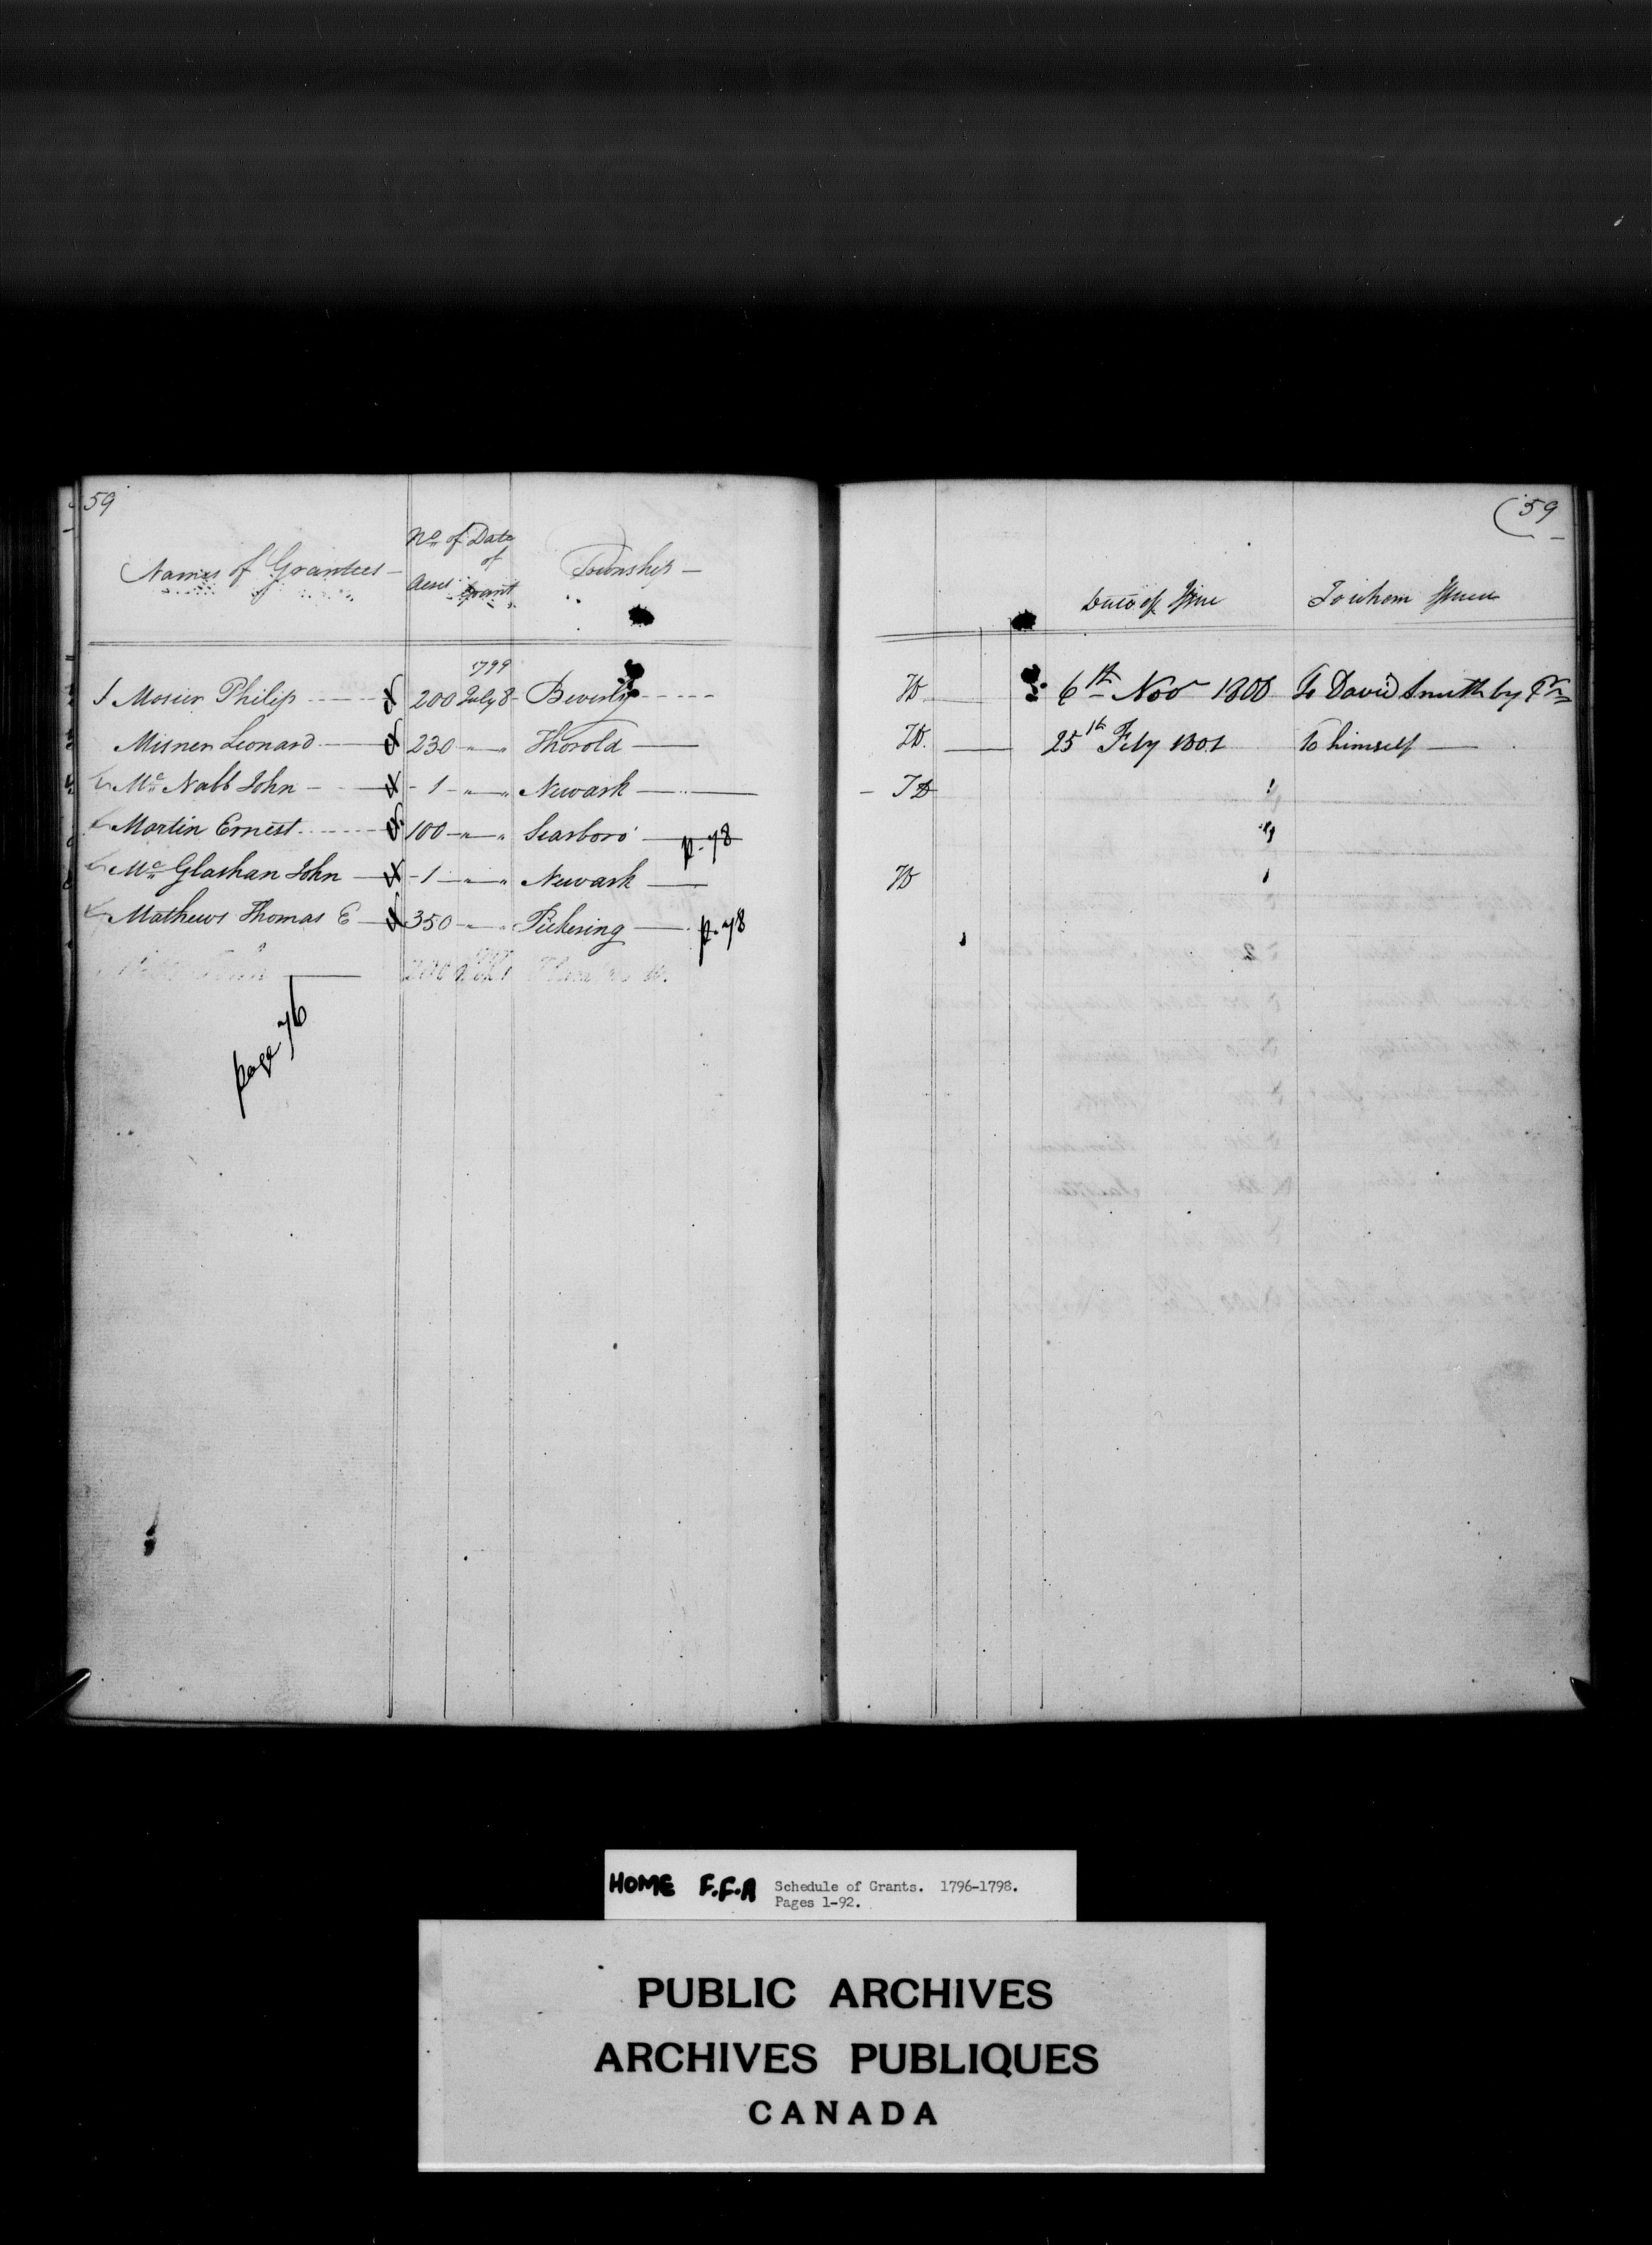 59
(59
Names of Grantees
No. of Acres
Date of Grant
Township
Date of Issue
To whom Issued
1799
Mosier Philip 200 July 8 Beverly HD 6th Nov 1800 To David Smith by
Misner Leonard 230 " " Thorold HD. 25th Feby 1801 to himself
Mc Nabb John 1 " " Newark HD
Martin Ernest 100 " " Scarboro' p. 78
Mc Glashan John 1 " " Newark HD
Mathews Thomas E 350 " " Pickering p. 78
200
page 76
HOME F.F.A Schedule of Grants. 1796-1798.
Pages 1-92.
PUBLIC ARCHIVES
ARCHIVES PUBLIQUES
CANADA